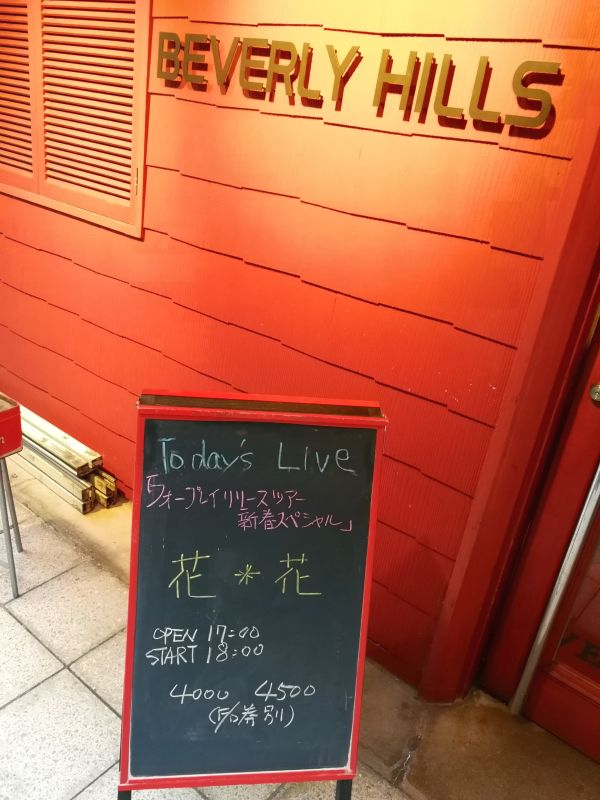 BEVERLY HILLS
Today's Live
「フォープレイリリースツアー
新春スペシャル」
花*花
OPEN 17:00
START 18:00
4000 4500
(F/D券別)